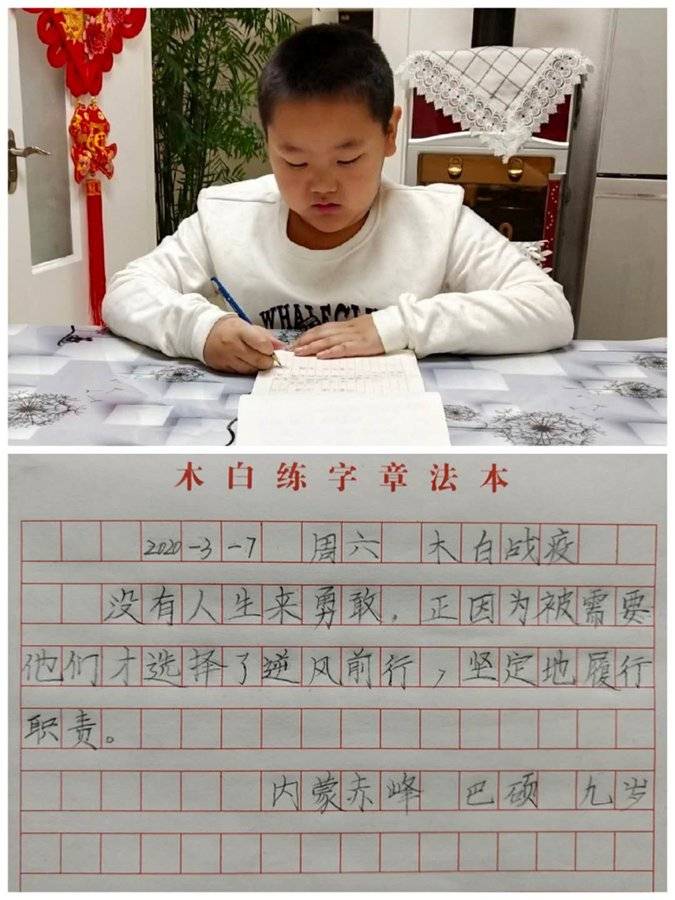 WHALECLU
木白练字章法本
2020-3-7 周六 木白战疫
没有人生来勇敢，正因为被需要
他们才选择了逆风前行，坚定地履行
职责。
内蒙赤峰 巴硕 九岁